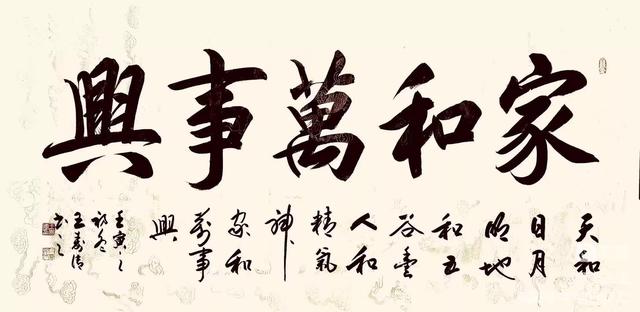 家和萬事興
天和
日月
明地
和五
谷豐
人和
精氣
神
家和
萬事
興
壬寅之
初冬
書之